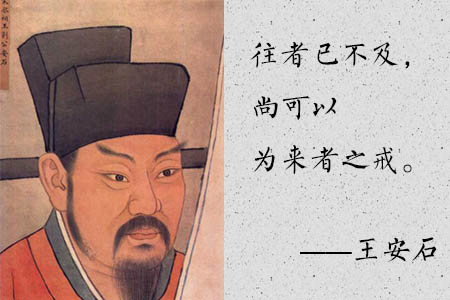 往者已不及，
尚可以
为来者之戒。
——王安石